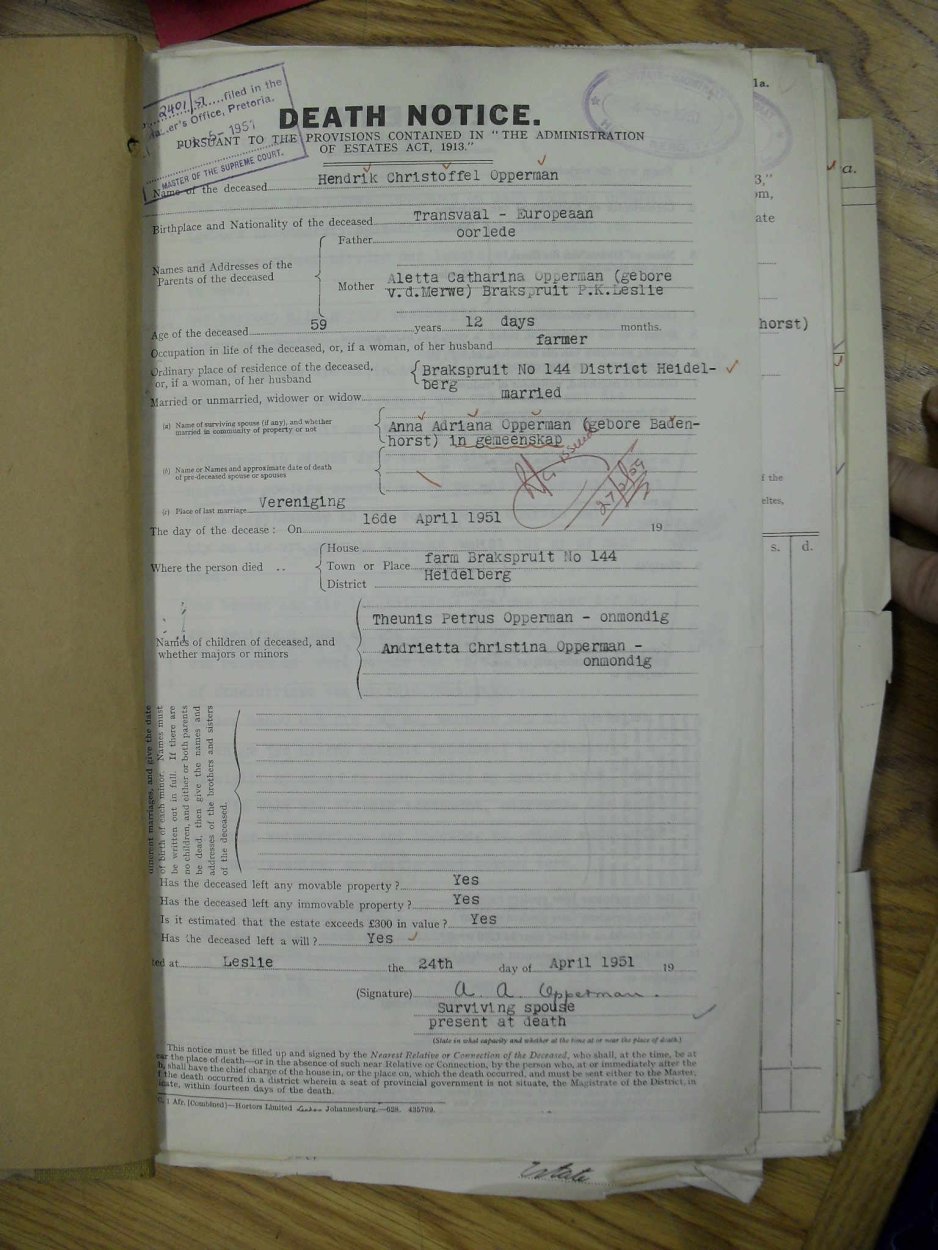 2401/51 filed in the
Office, Pretoria.
1951
MASTER OF THE SUPREME COURT.
DEATH NOTICE.
PURSUANT TO THE PROVISIONS CONTAINED IN "THE ADMINISTRATION
OF ESTATES ACT, 1913."
Name of the deceased Hendrik Christoffel Opperman
Birthplace and Nationality of the deceased Transvaal - Europeaan
Names and Addresses of the
Parents of the deceased
Father oorlede
Mother Aletta Catharina Opperman (gebore
v.d.Merwe) Brakspruit P.K.Leslie
Age of the deceased 59 years 12 days months.
Occupation in life of the deceased, or, if a woman, of her husband farmer
Ordinary place of residence of the deceased,
or, if a woman, of her husband
Brakspruit No 144 District Heidel-
berg
Married or unmarried, widower or widow married
(a) Name of surviving spouse (if any), and whether
married in community of property or not
Anna Adriana Opperman (gebore Baden-
horst) in gemeenskap
issued
(b) Name or Names and approximate date of death
of pre-deceased spouse or spouses
(c) Place of last marriage Vereniging
The day of the decease: On 16de April 1951 19
Where the person died ..
House
Town or Place farm Brakspruit No 144
District Heidelberg
Names of children of deceased, and
whether majors or minors
Theunis Petrus Opperman - onmondig
Andrietta Christina Opperman -
onmondig
marriages, and give the date
of birth of each minor. Names must
be written out in full. If there are
no children, and either or both parents
be dead, then give the names and
addresses of the brothers and sisters
of the deceased.
Has the deceased left any movable property? Yes
Has the deceased left any immovable property? Yes
Is it estimated that the estate exceeds £300 in value? Yes
Has the deceased left a will? Yes
ted at Leslie the 24th day of April 1951 19
(Signature) A. A. Opperman.
Surviving spouse
present at death
(State in what capacity and whether at the time at or near the place of death.)
This notice must be filled up and signed by the Nearest Relative or Connection of the Deceased, who shall, at the time, be at
ear the place of death—or in the absence of such near Relative or Connection, by the person who, at or immediately after the
h, shall have the chief charge of the house in, or the place on, which the death occurred, and must be sent either to the Master,
f the death occurred in a district wherein a seat of provincial government is not situate, the Magistrate of the District, in
icate, within fourteen days of the death.
1 Afr. (Combined)—Hortors Limited Johannesburg.—638. 435799.
1a.
a.
3,"
om,
ate
horst)
f the
eltes,
s. d.
Estate